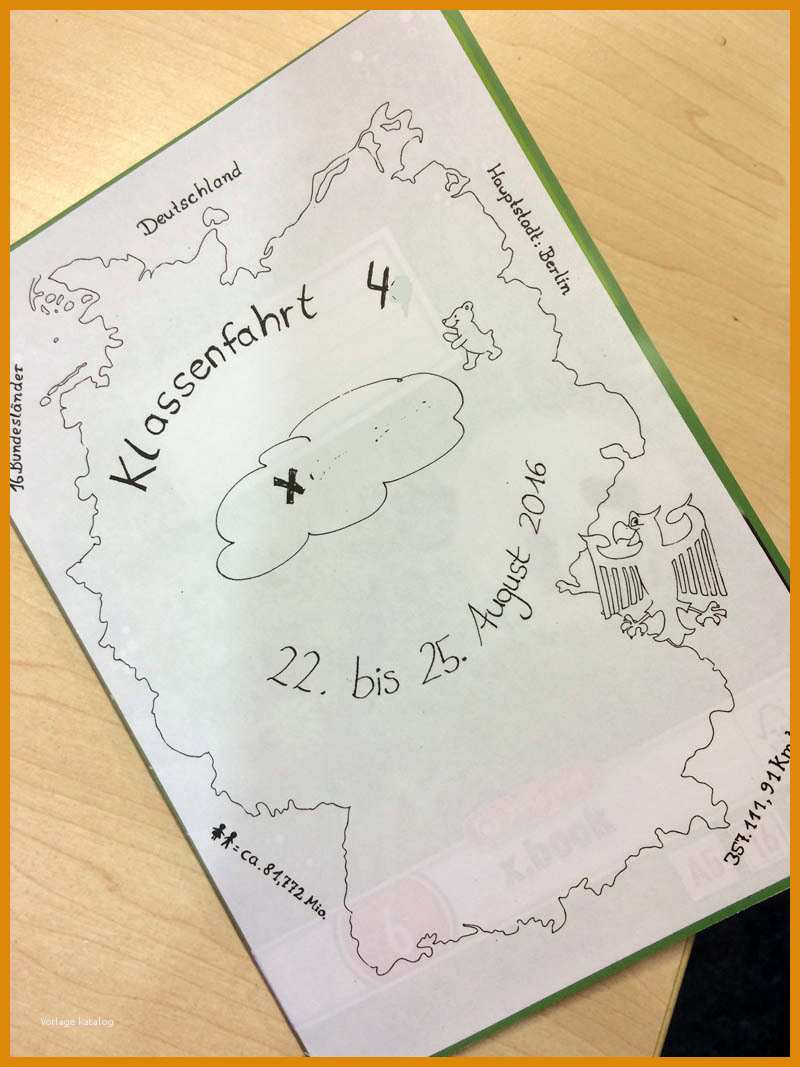 Deutschland
Hauptstadt: Berlin
16 Bundesländer
Klassenfahrt 4
x
22. bis 25. August 2016
= ca. 81,772 Mio.
357.111,91 Km²
Vorlage katalog